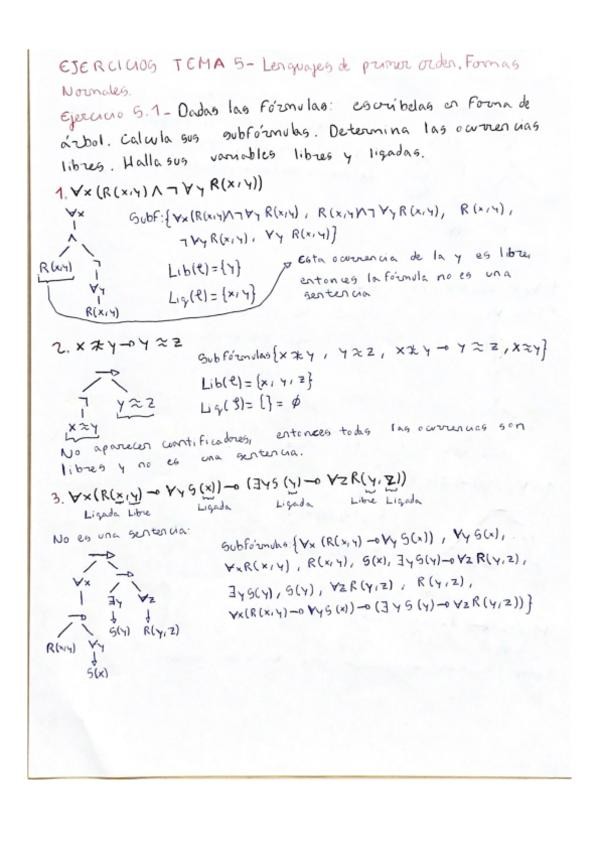 EJERCICIOS TEMA 5- Lenguajes de primer orden. Formas
Normales.
Ejercicio 5.1- Dadas las fórmulas: escribelas en forma de
árbol. Calcula sus subfórmulas. Determina las ocurrencias
libres. Halla sus variables libres y ligadas.
1. ∀x(R(x,y)∧¬∀yR(x,y))
∀x
∧
R(x,y)
¬
∀y
R(x,y)
Subf:{∀x(R(x,y)∧¬∀yR(x,y), R(x,y)∧¬∀yR(x,y), R(x,y),
¬∀yR(x,y), ∀yR(x,y)}
Lib(φ)={y}
Lig(φ)={x,y}
Esta ocurrencia de la y es libre,
entonces la fórmula no es una
sentencia
2. x≉y→y≈z
→
¬
y≈z
x≈y
Subfórmulas{x≉y, y≈z, x≉y→y≈z, x≈y}
Lib(φ)={x,y,z}
Lig(φ)={}=∅
No aparecen cuantificadores, entonces todas las ocurrencias son
libres y no es una sentencia.
3. ∀x(R(x,y)→∀yS(x))→(∃yS(y)→∀zR(y,z))
Ligada Libre Ligada Ligada Libre Ligada
No es una sentencia:
→
∀x
→
∃y
∀z
→
S(y)
R(y,z)
R(x,y)
∀y
S(x)
Subfórmulas:{∀x(R(x,y)→∀yS(x)), ∀yS(x),
∀xR(x,y), R(x,y), S(x), ∃yS(y)→∀zR(y,z),
∃yS(y), S(y), ∀zR(y,z), R(y,z),
∀x(R(x,y)→∀yS(x))→(∃yS(y)→∀zR(y,z))}